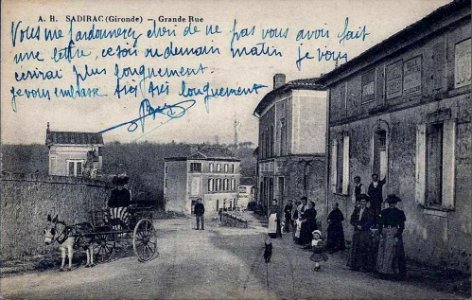 A. B. SADIRAC (Gironde) — Grande Rue
Vous me pardonnerez cheri de ne pas vous avoir fait
une lettre, ce soir ou demain matin je vous
ecrirai plus longuement.
je vous embrasse très très longuement